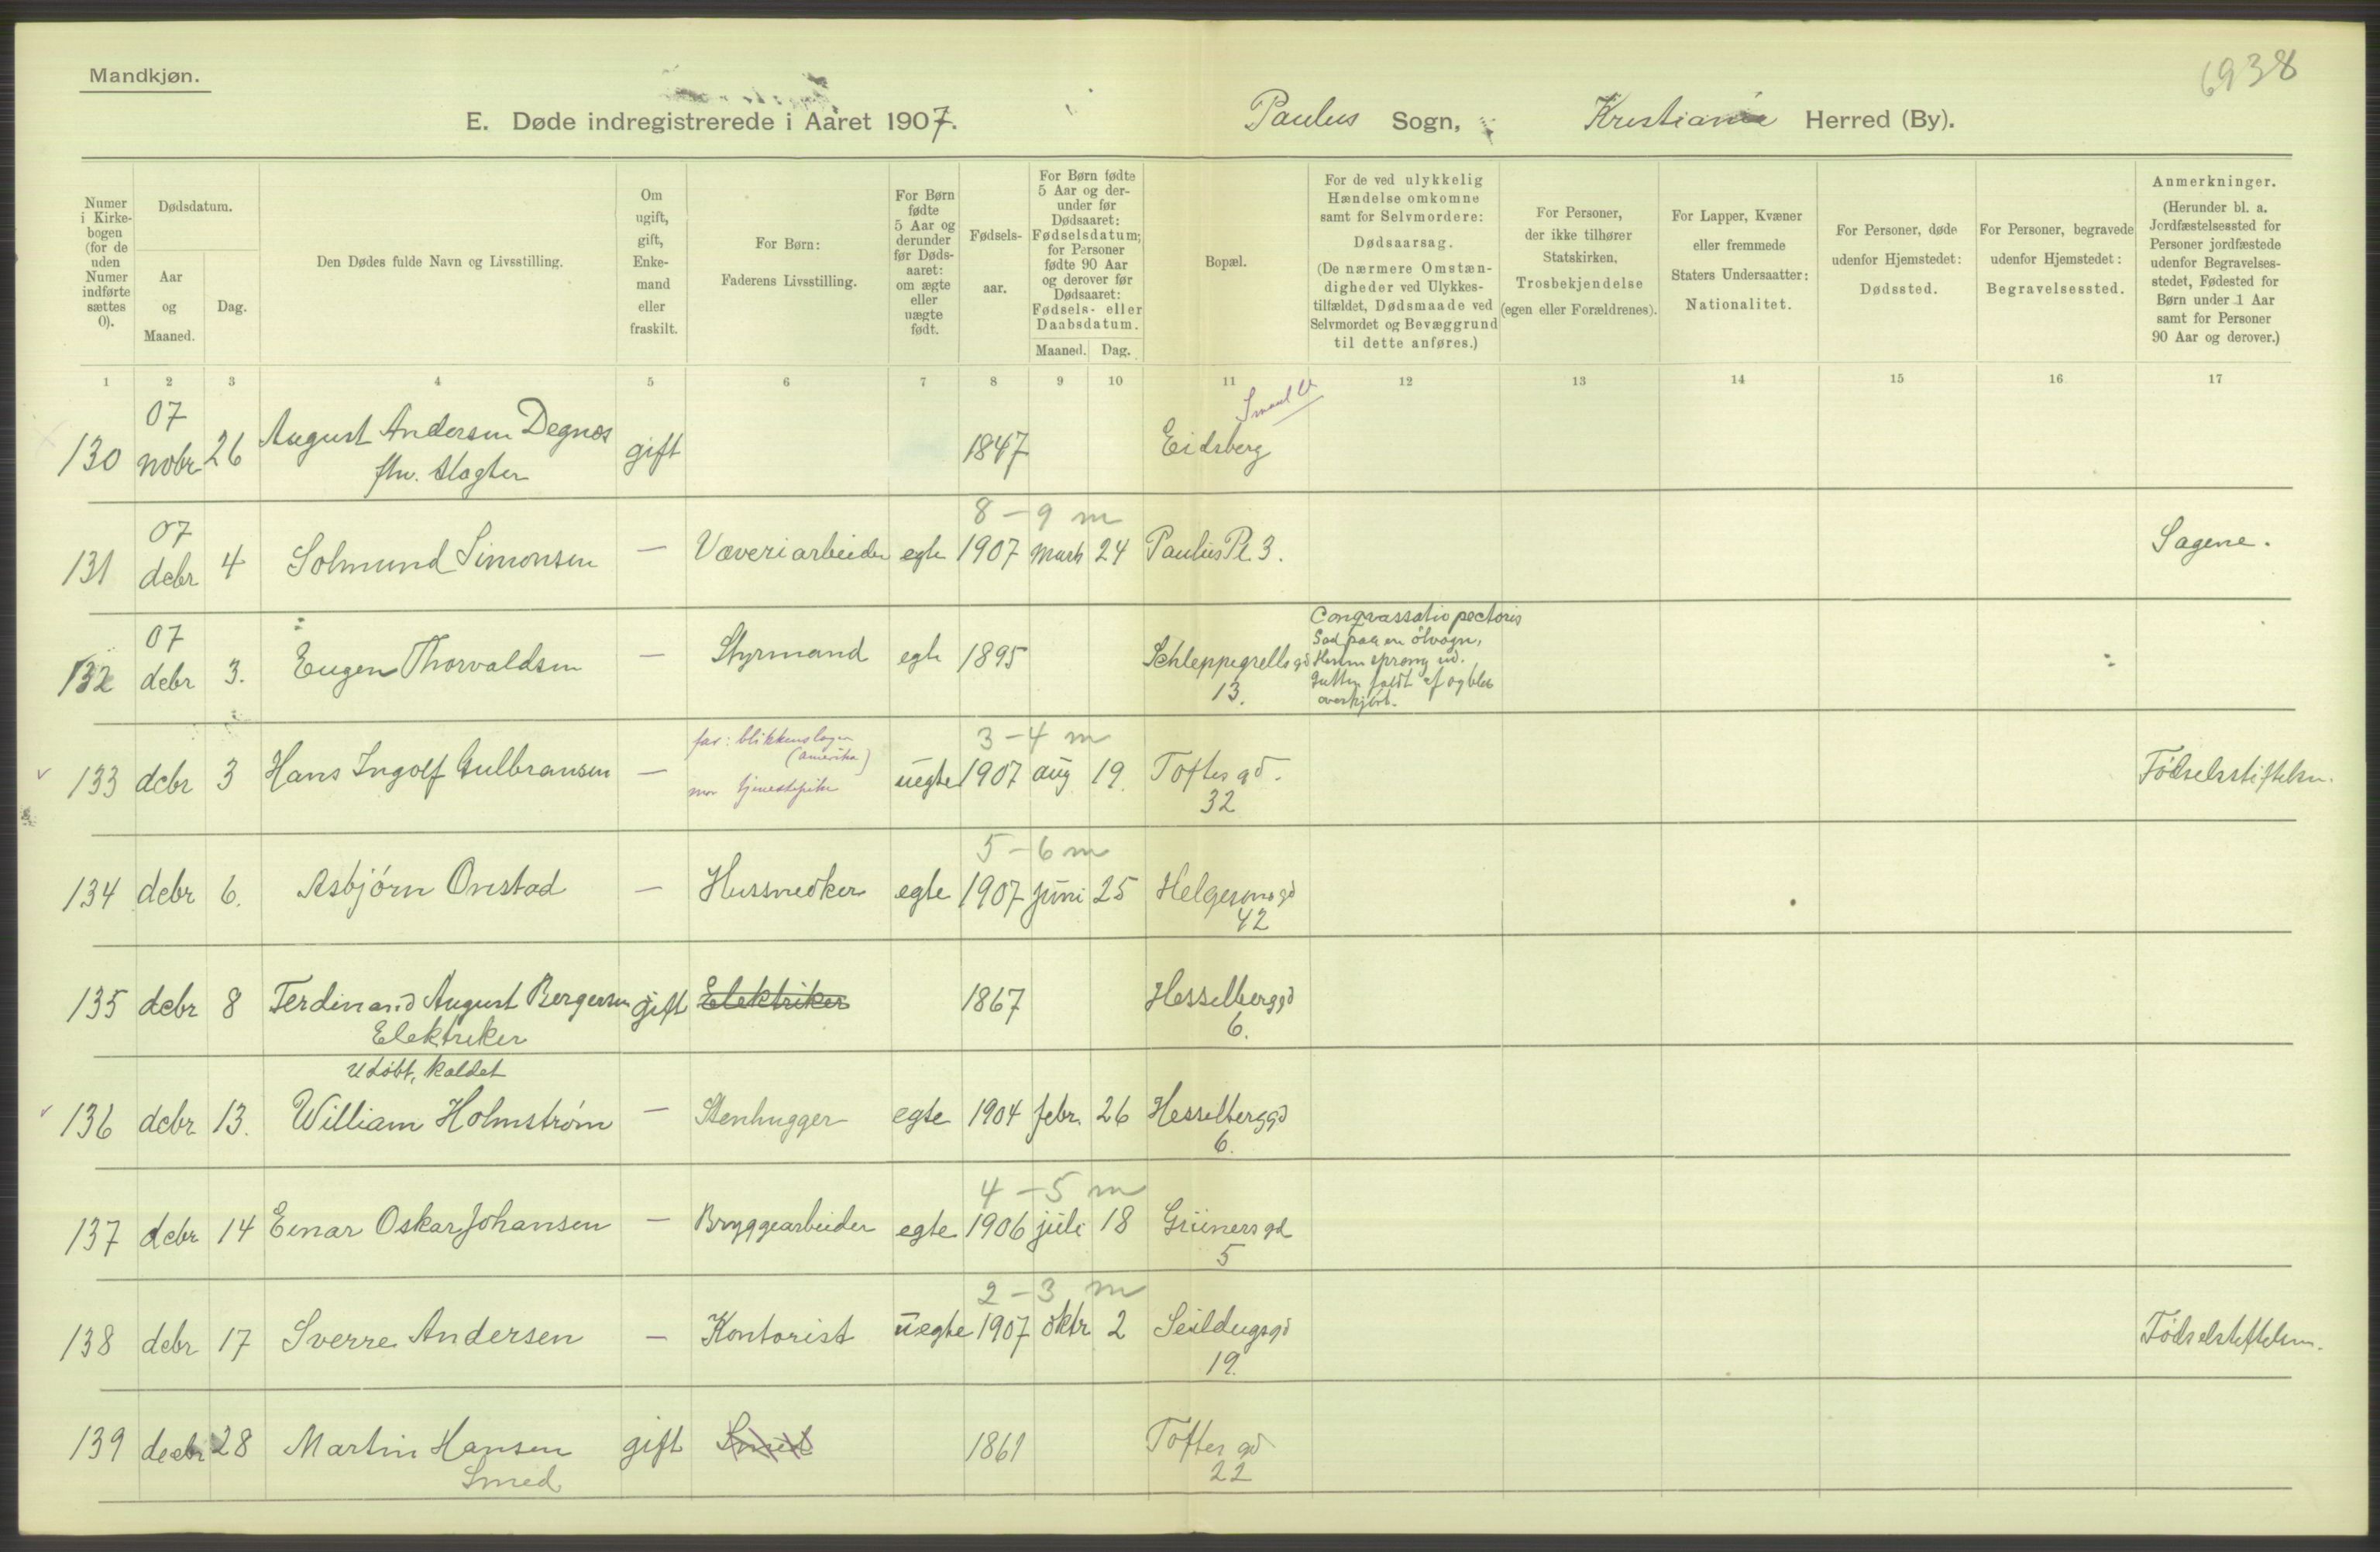 Mandkjøn.
6938
E. Døde indregistrerede i Aaret 1907. Paulus Sogn, Kristiania Herred (By).
Numer i Kirke-bogen (for de uden Numer indførte sættes 0).
Dødsdatum.
Aar og Maaned.
Dag.
Den Dødes fulde Navn og Livsstilling.
Om ugift, gift, Enke-mand eller fraskilt.
For Børn: Faderens Livsstilling.
For Børn fødte 5 Aar og derunder før Døds-aaret: om ægte eller uægte født.
Fødsels-aar.
For Børn fødte 5 Aar og der-under før Dødsaaret: Fødselsdatum; for Personer fødte 90 Aar og derover før Dødsaaret: Fødsels- eller Daabsdatum.
Maaned. Dag.
Bopæl.
For de ved ulykkelig Hændelse omkomne samt for Selvmordere: Dødsaarsag. (De nærmere Omstæn-digheder ved Ulykkes-tilfældet, Dødsmaade ved Selvmordet og Bevæggrund til dette anføres.)
For Personer, der ikke tilhører Statskirken, Trosbekjendelse (egen eller Forældrenes).
For Lapper, Kvæner eller fremmede Staters Undersaatter: Nationalitet.
For Personer, døde udenfor Hjemstedet: Dødssted.
For Personer, begravede udenfor Hjemstedet: Begravelsessted.
Anmerkninger. (Herunder bl. a. Jordfæstelsessted for Personer jordfæstede udenfor Begravelses-stedet, Fødested for Børn under 1 Aar samt for Personer 90 Aar og derover.)
1 2 3 4 5 6 7 8 9 10 11 12 13 14 15 16 17
07
130 nobr 26 August Andersen Degnes gift 1847 Eidsberg
fhv. Slagter
07 8-9 m
131 debr 4 Solmund Simonsen — Væveriarbeider egte 1907 Marts 24 Paulus Pl. 3. Sagene.
07
132 debr 3. Eugen Thorvaldsen — Styrmand egte 1895 Schleppegrells gd 13.
Congvassatio pectoris
Sad paa en ølvogn,
Hesten sprang ud.
Gutten faldt af og blev
overkjørt.
far: blikkenslager
(Amerika) 3-4 m
133 debr 3 Hans Ingolf Gulbransen — uegte 1907 aug 19. Toftes gd. Fødselsstiftelsen.
mor tjenestepike
32
5-6 m
134 debr 6. Asbjørn Onstad — Hussnedker egte 1907 juni 25 Helgesens gd
42
135 debr 8 Ferdinand August Bergersen gift Elektriker 1867 Hesselberg gd
Elektriker 6.
Udøbt, kaldet
136 debr 13. William Holmstrøm — Stenhugger egte 1904 febr. 26 Hesselberg gd
6.
4-5 m
137 debr 14 Einar Oskar Johansen — Bryggearbeider egte 1906 juli 18 Grüners gd
5
2-3 m
138 debr 17 Sverre Andersen — Kontorist uegte 1907 oktr 2 Seildugsgd Fødselsstiftelsen.
19.
139 decbr 28 Martin Hansen gift Smed 1861 Toftes gd
Smed 22